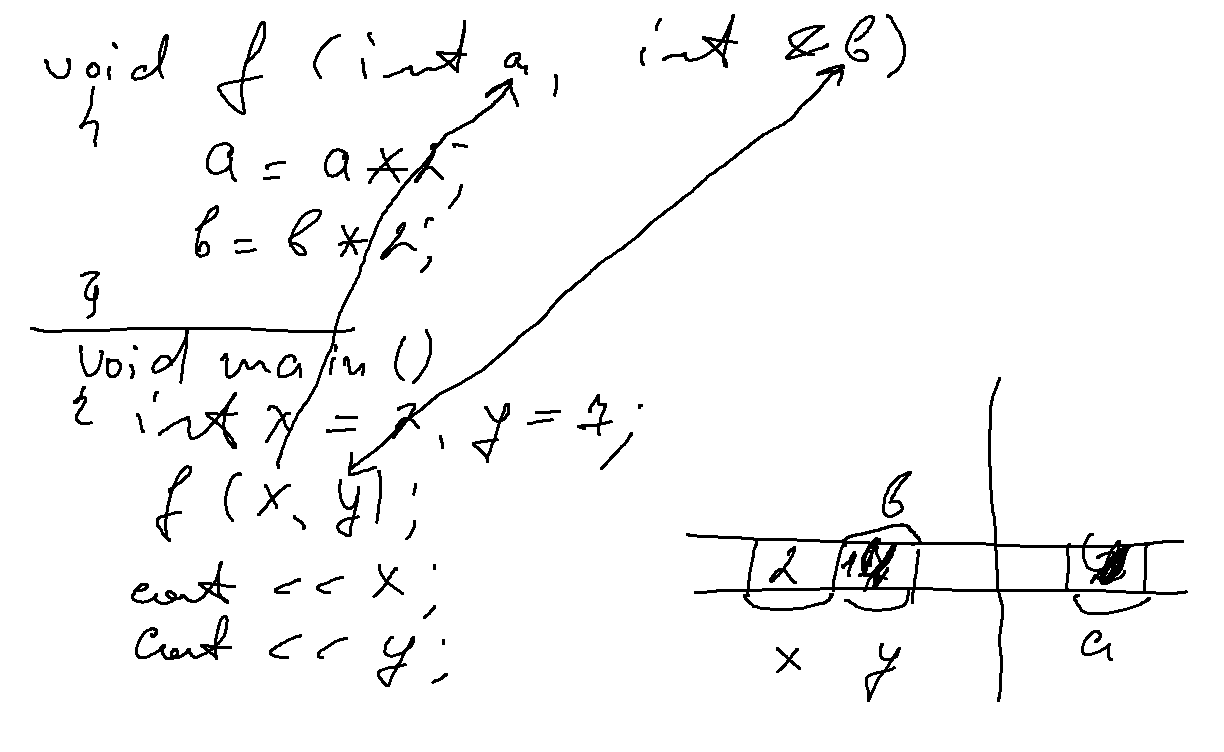 void f (int a, int &b)
{
a = a * 2;
b = b * 2;
}
void main ()
{ int x = 2, y = 7;
f (x, y);
cout << x;
cout << y;
b
2 14
x y a